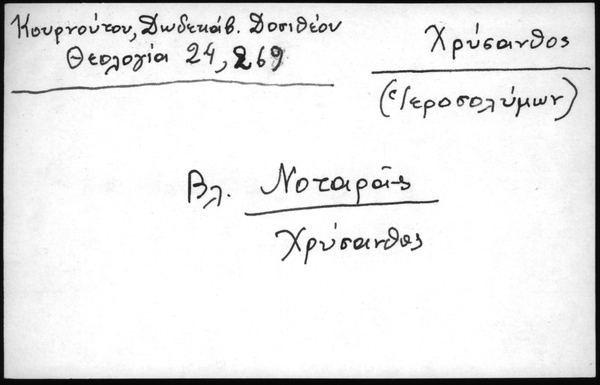 Κουρνούτου, Δωδεκάβ. Δοσιθέου
Θεολογία 24, 269
Χρύσανθος
(Ἱεροσολύμων)
Βλ. Νοταρᾶς
Χρύσανθος